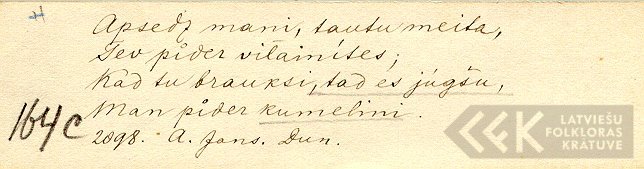 Apsedz mani, tautu meita,
Tev pîder vilainítes;
Kad tu brauksi, tad es júgšu,
Man pîder kumelini.
164c
2898. A. Jans. Dun.
LATVIEŠU
FOLKLORAS
KRATUVE